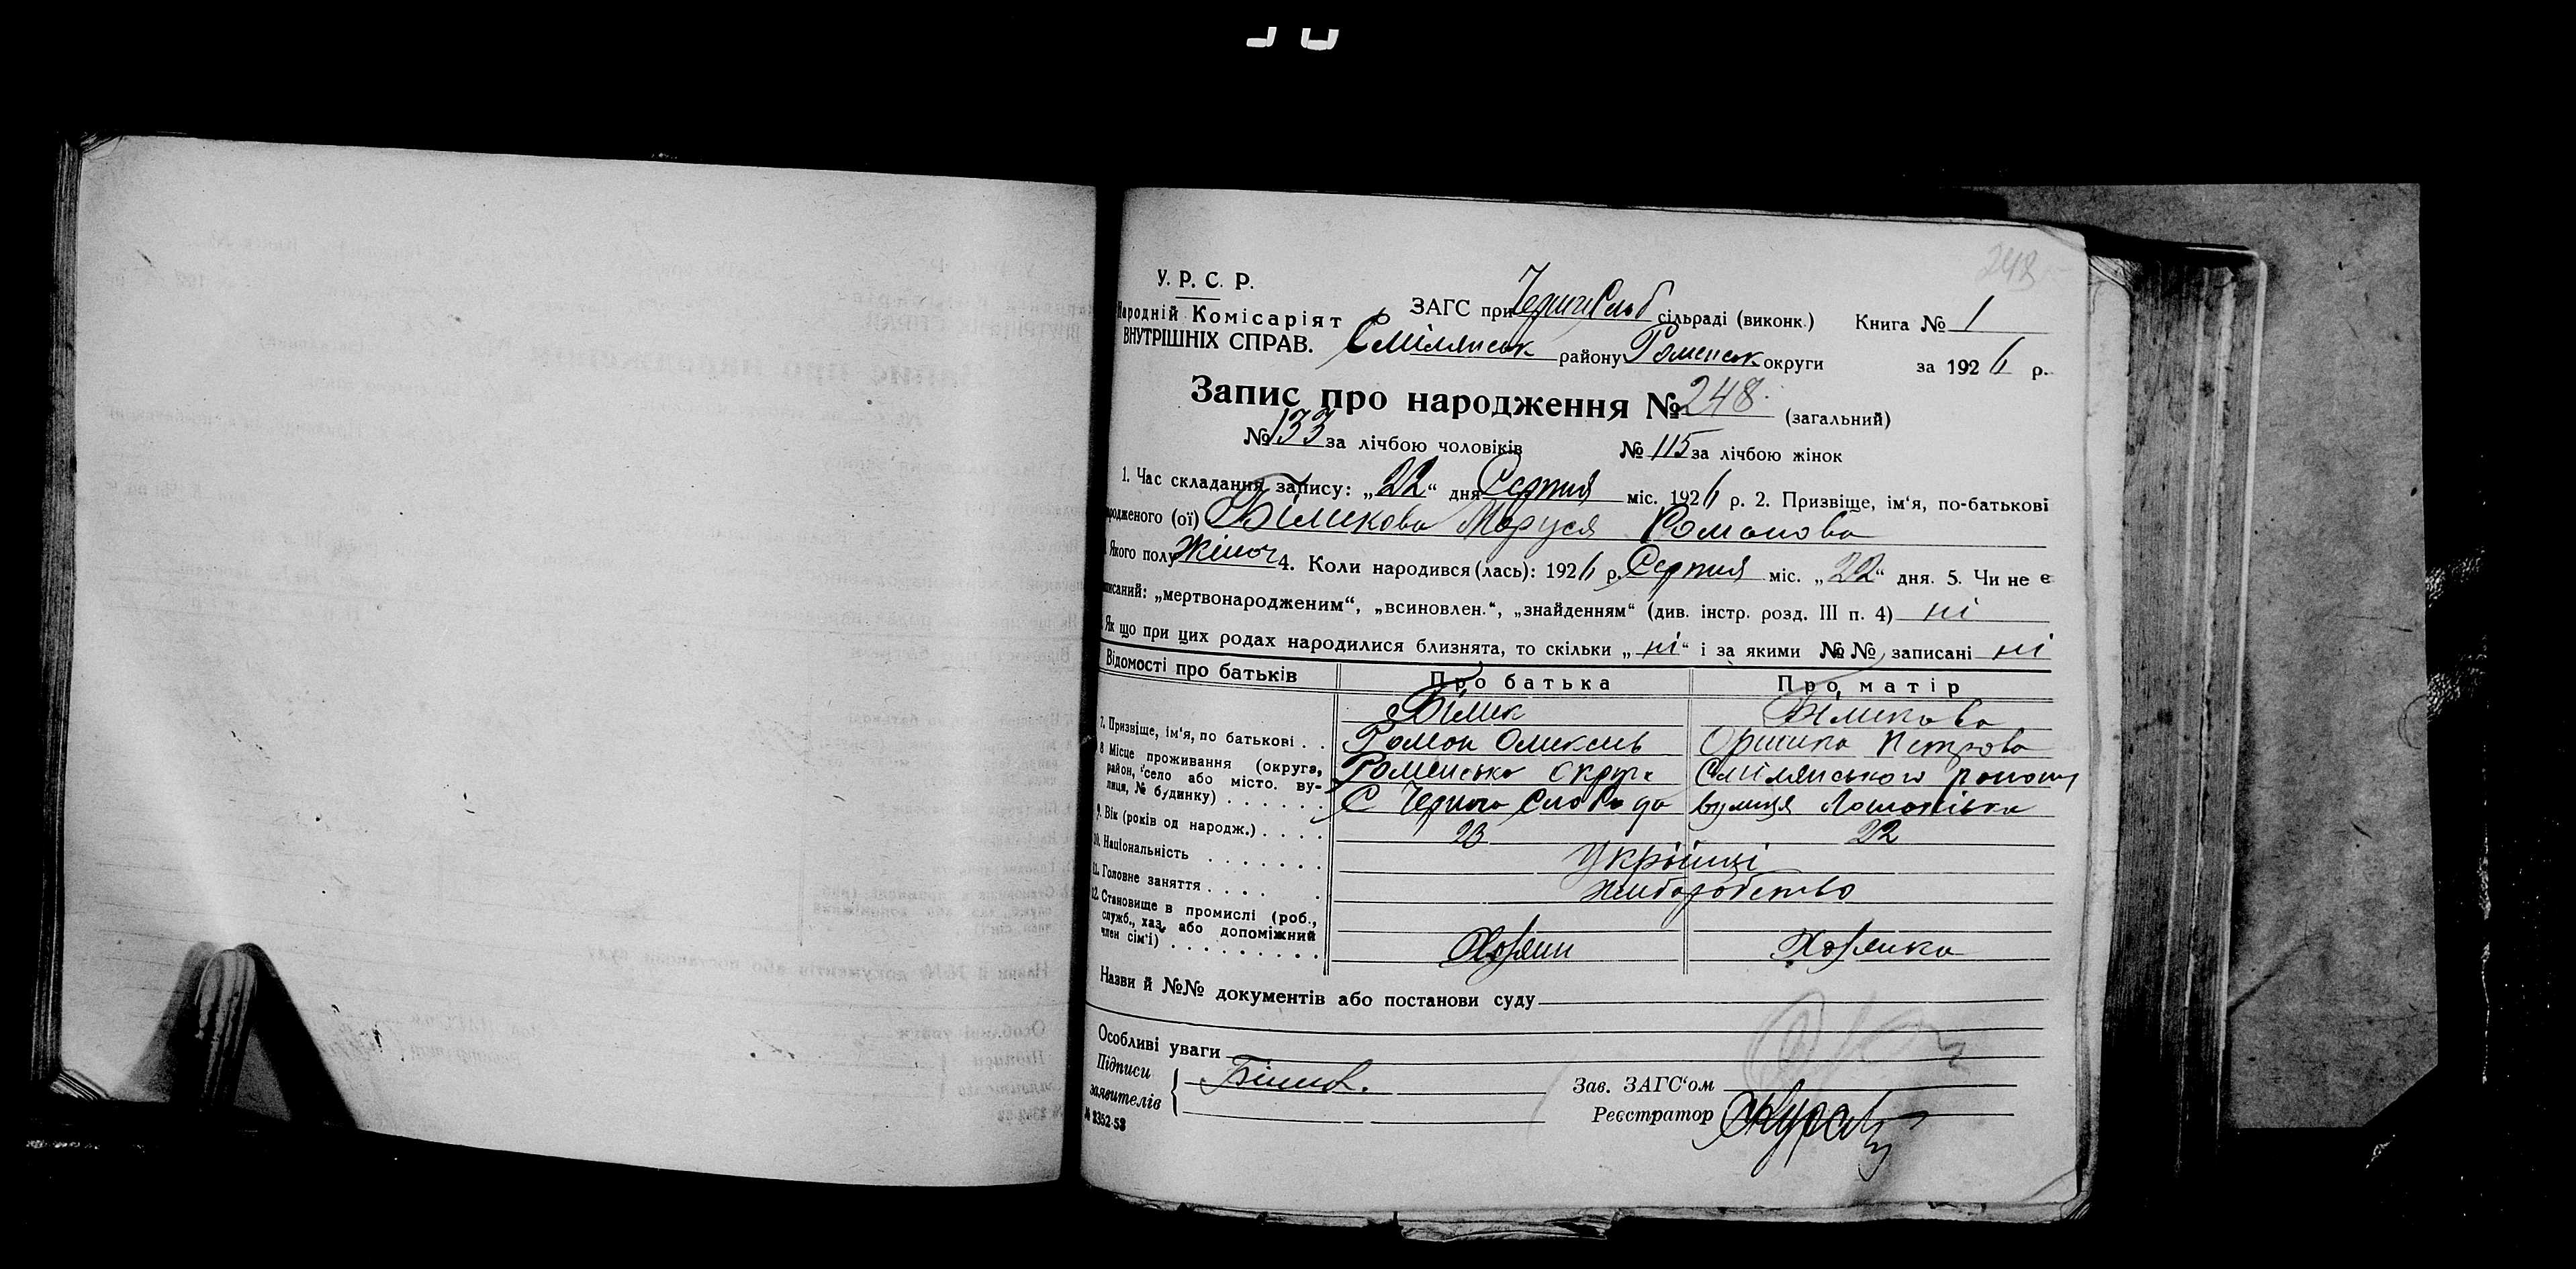 248
У. Р. С. Р.
Народній Комісаріят
ВНУТРІШНІХ СПРАВ.
ЗАГС при Чернослоб сільраді (виконк.) Книга № 1
Смілянськ району Роменськ округи за 1926 р.
Запис про народження № 248 (загальний)
№ 133 за лічбою чоловіків № 115 за лічбою жінок
1. Час складання запису: „22“ дня Серпня міс. 1926 р. 2. Призвіще, ім‘я, по-батькові
родженого (ої) Біликова Маруся Романова
Якого полу Жіноч 4. Коли народився (лась): 1926 р. Серпня міс. „22“ дня. 5. Чи не є
писаний: „мертвонародженим“, „всиновлен.“, „знайденням“ (див. інстр. розд. III п. 4) ні
Як що при цих родах народилися близнята, то скільки „ні“ і за якими №№ записані ні
Відомості про батьків Про батька Про матір
7. Призвіще, ім‘я, по батькові . . Білик Біликова
Роман Олексієв Оришка Петрова
8 Місце проживання (округа, район, село або місто. вулиця, № будинку) . . . . . . Роменська округа Смілянського району
С Черна Слобода вулиця
9. Вік (років од народж.) . . . . 23 22
10. Національність . . . . . . . Українці
11. Головне заняття . . . . . Хліборобство
12. Становище в промислі (роб., служб., хаз, або допоміжний член сім‘ї) . . . . . . . Хозяин Хозяйка
Назви й №№ документів або постанови суду
Особливі уваги
Підписи
заявителів Білик.
Зав. ЗАГС‘ом
Реєстратор
№ 2352-58